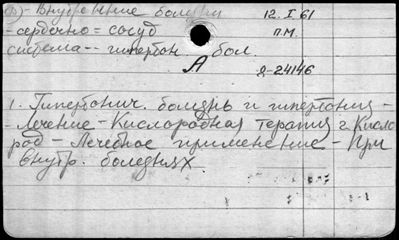 Внутренние болезни 12.I 61
- сердечно = сосуд П.М.
система -- гипертон бол.
А Д-24146
1. Гипертонич. болезнь и гипертония -
- Лечение - Кислородная терапия 2. Кисло
род - Лечебное применение - При
внутр. болезнях.